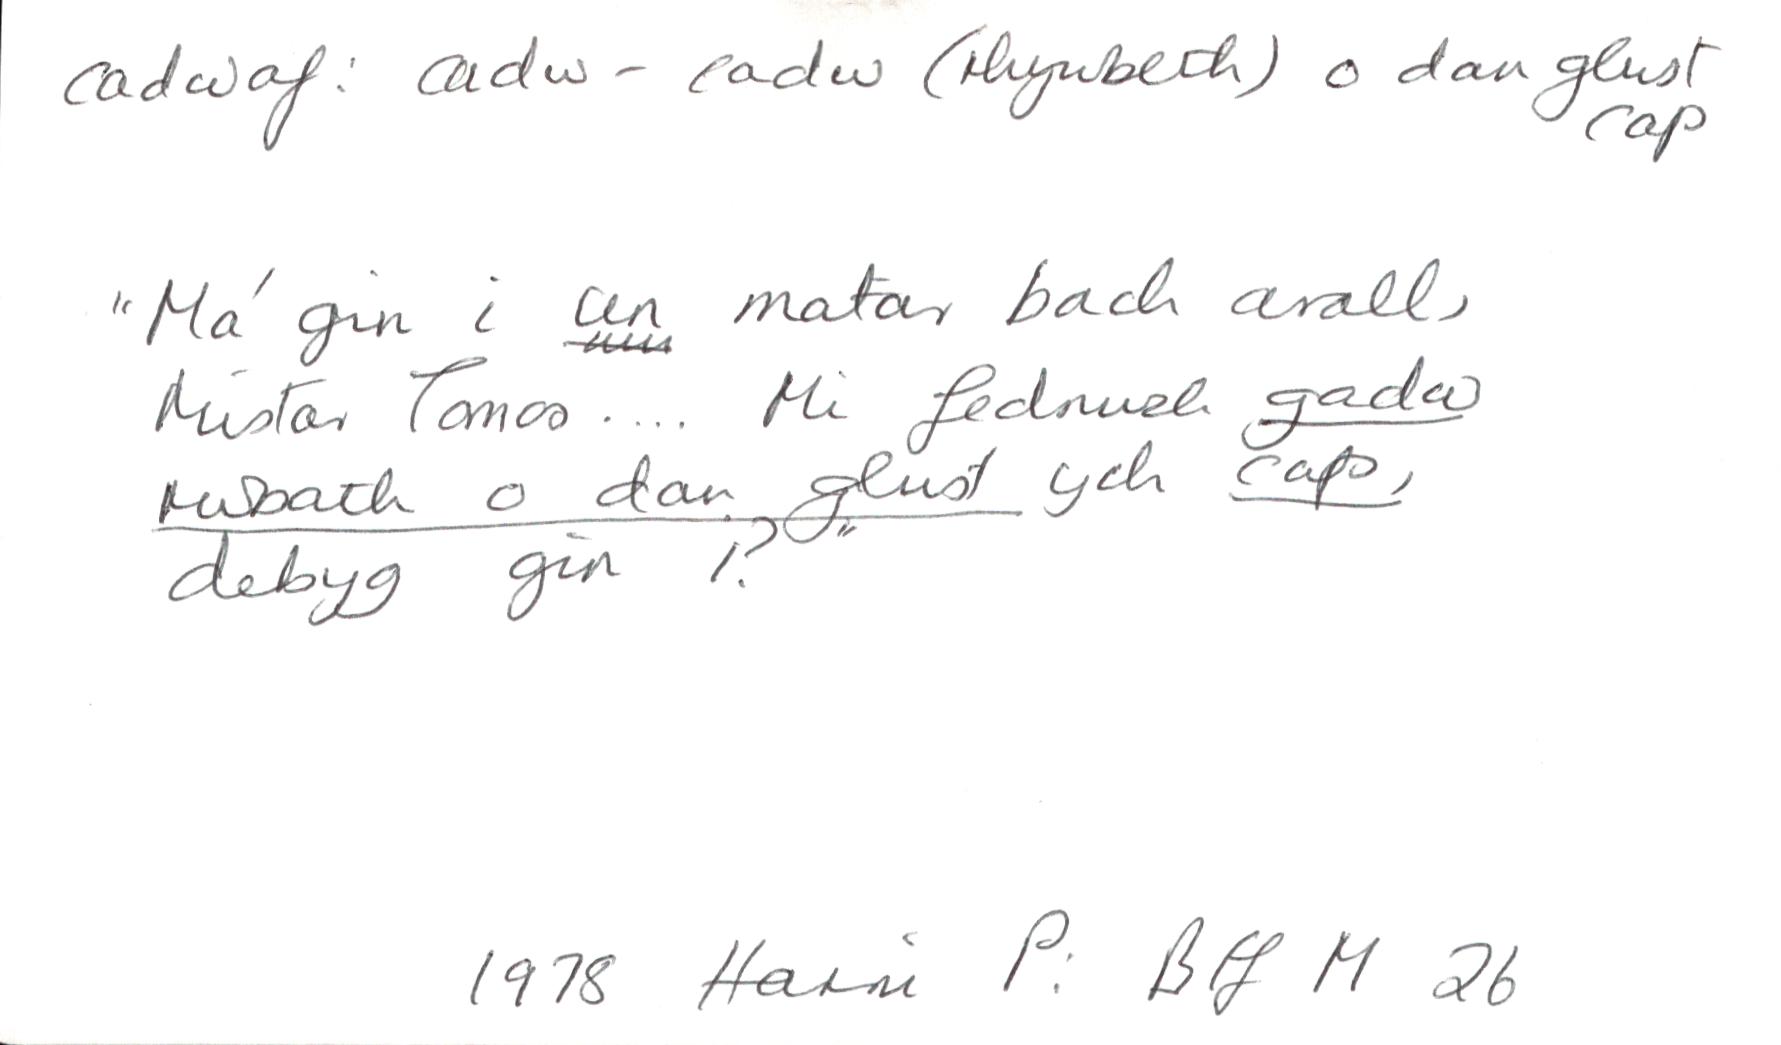 cadwaf: cadw - cadw (rhywbeth) o dan glust
cap
"Ma' gin i un matar bach arall,
Mistar Tomos.... Mi fedrwch gadw
rwbath o dan glust ych cap,
debyg gin i?"
1978 Harri P: Bff M 26